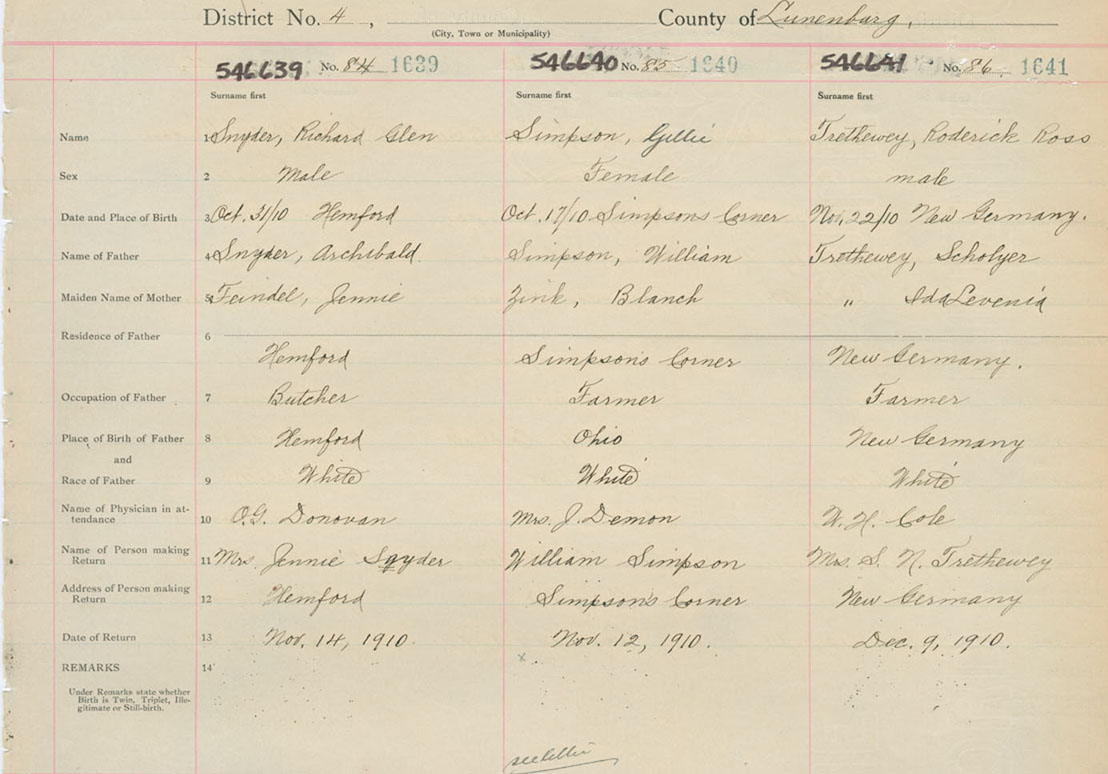 District No. 4 , County of Lunenburg,
(City, Town or Municipality)
546639 No. 84 1639 546640 No. 85 1640 546641 No. 86 1641
Surname first Surname first Surname first
Name 1 Snyder, Richard Glen Simpson, Gillie Trethewey, Roderick Ross
Sex 2 Male Female male
Date and Place of Birth 3 Oct. 31/10 Hemford Oct. 17/10 Simpsons Corner Nov. 22/10 New Germany.
Name of Father 4 Snyder, Archibald. Simpson, William Trethewey, Scholyer
Maiden Name of Mother 5 Feindel, Jennie Zink, Blanch " Ida Levenia
Residence of Father 6
Hemford Simpson's Corner New Germany.
Occupation of Father 7 Butcher Farmer Farmer
Place of Birth of Father 8 Hemford Ohio New Germany
and
Race of Father 9 White White White
Name of Physician in at-
tendance 10 O.G. Donovan Mrs. J. Demon W. H. Cole
Name of Person making
Return 11 Mrs. Jennie Snyder William Simpson Mrs. S. N. Trethewey
Address of Person making
Return 12 Hemford Simpson's Corner New Germany
Date of Return 13 Nov. 14, 1910. Nov. 12, 1910. Dec. 9, 1910.
REMARKS 14
Under Remarks state whether
Birth is Twin, Triplet, Ille-
gitimate or Still-birth.